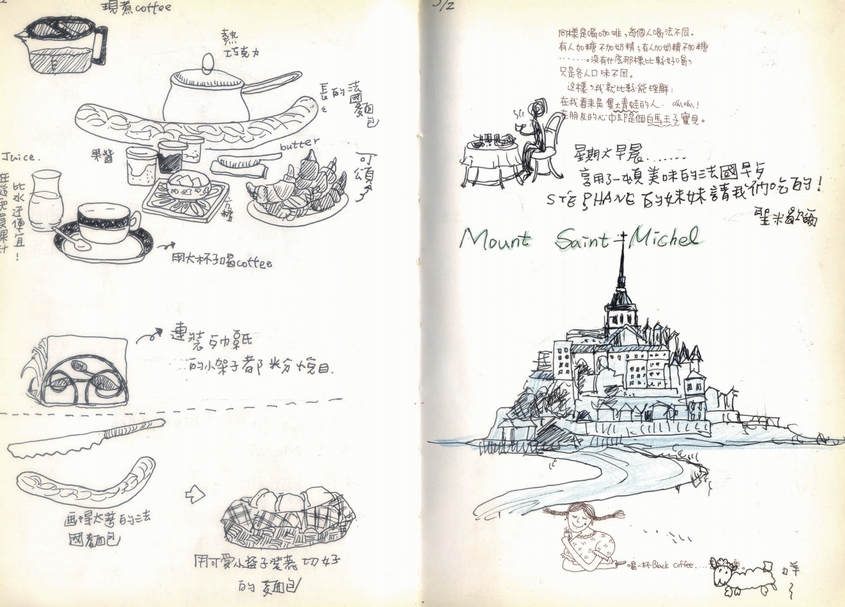 現煮coffee
熱
巧克力
長的法國麵包
果醬
butter
可頌
Juice.
比水還便宜!
方糖
用大杯子喝coffee
連裝
的小架子都十分悅目.
的法
國麵包
用可愛小籃子裝著切好
的麵包
5/2
同樣是喝咖啡,每個人喝法不同.
有人加糖不加奶精;有人加奶精不加糖
沒有什麼那樣比較好喝?
又是各人口味不同.
這樣?我就比較能理解:
在我看來是隻大青蛙的人.
在朋友的心中卻是個白馬王子寶貝.
星期六早晨......
享用了一頓美味的法國早點
STEPHANE 的妹妹請我們吃的!
聖米歇爾
Mount Saint-Michel
喝一杯Black coffee....
咩